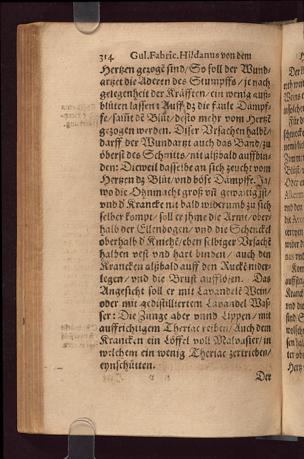 314 Gul. Fabric. Hildanus von dem
Hertzen gezogē sind/ So soll der Wund-
artzet die Aderen des Stumpffs/ je nach
gelegenheit der Kräfften/ ein wenig auß-
blüten lassen: Auff dz die faule Dämpf-
fe/ sampt dē Blüt/ desto mehr vom Hertzē
gezogen werden. Diser Vrsachen halbē/
darff der Wundartzt auch das Band/ zu
oberst des Schnitts/ nit alßbald auffbin-
den: Dieweil dasselbe an sich zeucht vom
Hertzen dz Blüt/ vnd böse Dämpffe. Ja/
wo die Ohnmacht groß vñ gewaltig ist/
vnd ď Krancke nit bald widerumb zu sich
selber kompt/ soll er jhme die Arme/ ober-
halb der Ellenbogen/ vnd die Schenckel
oberhalb ď Kniehē/ eben selbiger Vrsachē
halben vest vnd hart binden/ auch den
Krancken alßbald auff den Rucken nider-
legen/ vnd die Brust aufflösen. Das
Angesicht soll er mit Lavandelē Wein/
oder mit gedistilliertem Lavandel Was-
ser: Die Zunge aber vnnd Lippen/ mit
auffrichtigem Theriac reiben/ Auch dem
Krancken ein Löffel voll Malvasier/ in
welchem ein wenig Theriac zertrieben/
eynschütten.
Der